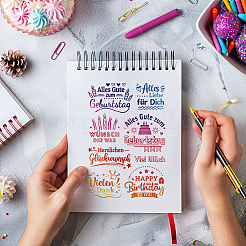 Alles Gute
zum
Geburtstag
Alles
Liebe
für Dich
WÜNSCH
DIR WAS
Alles Gute
zum
Geburtstag
Herzlichen
Glückwunsch
Viel Glück
Vielen
Dank
HAPPY
Birthday
TO YOU